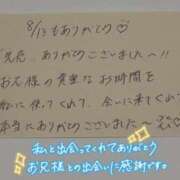 8/13もありがとう
先程、ありがとうございました〜!!
お兄様の貴重なお時間を
使ってくれて、会いに来てくれて
本当にありがとうございました〜
私と出会ってくれてありがとう
お兄様との出会いに感謝です